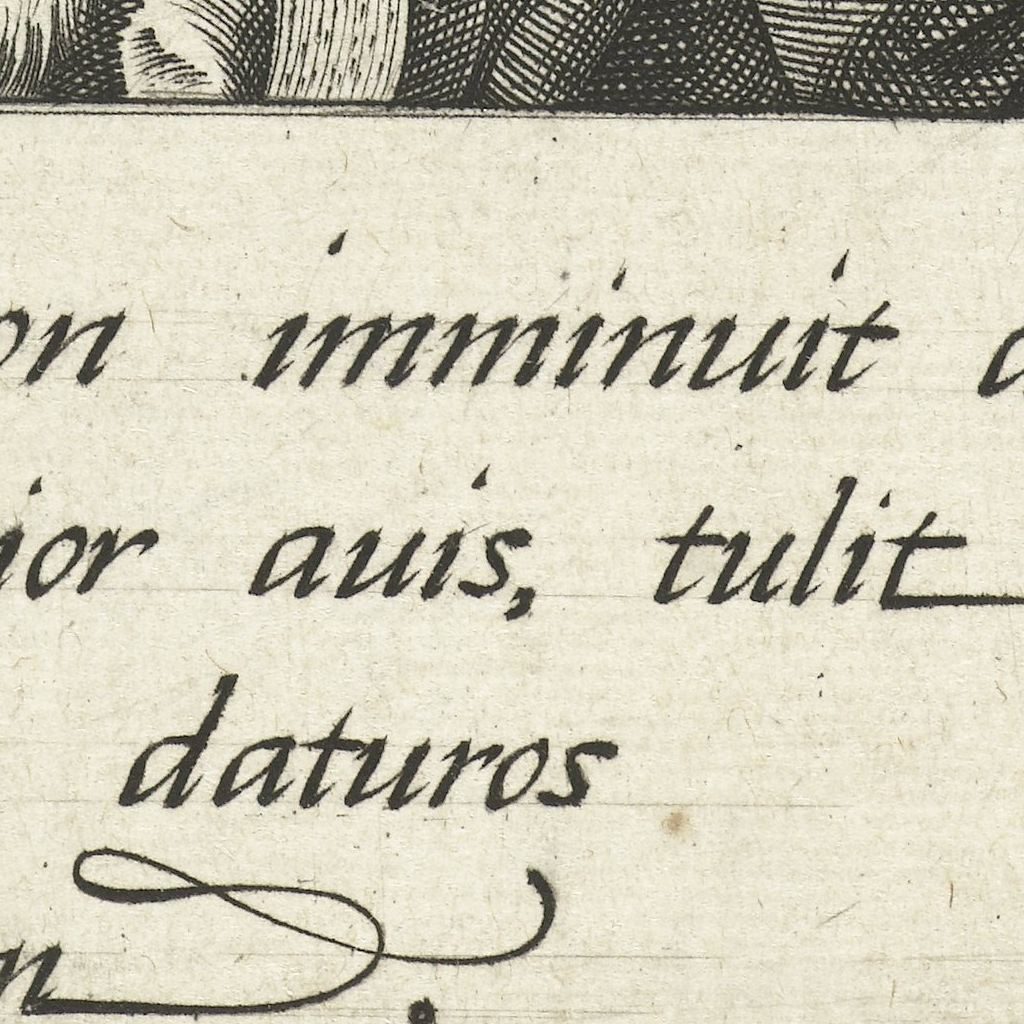 on imminuit
ior auis, tulit
daturos